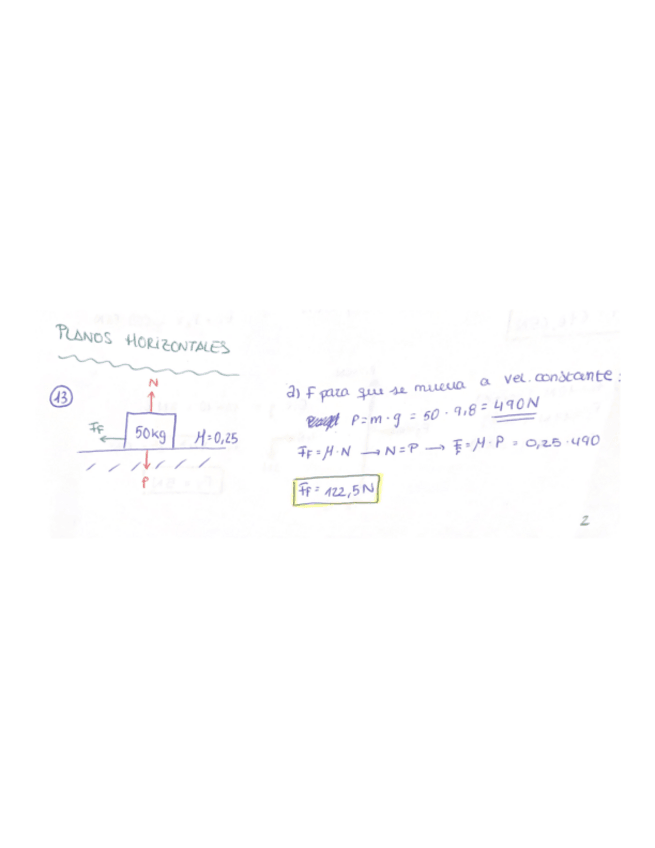 PLANOS HORIZONTALES
13
N
FF
50kg
μ=0,25
P
a) F para que se mueva a vel. constante:
P=m·g = 50·9,8= 490N
FF=μ·N → N=P → FF=μ·P = 0,25·490
FF= 122,5N
2